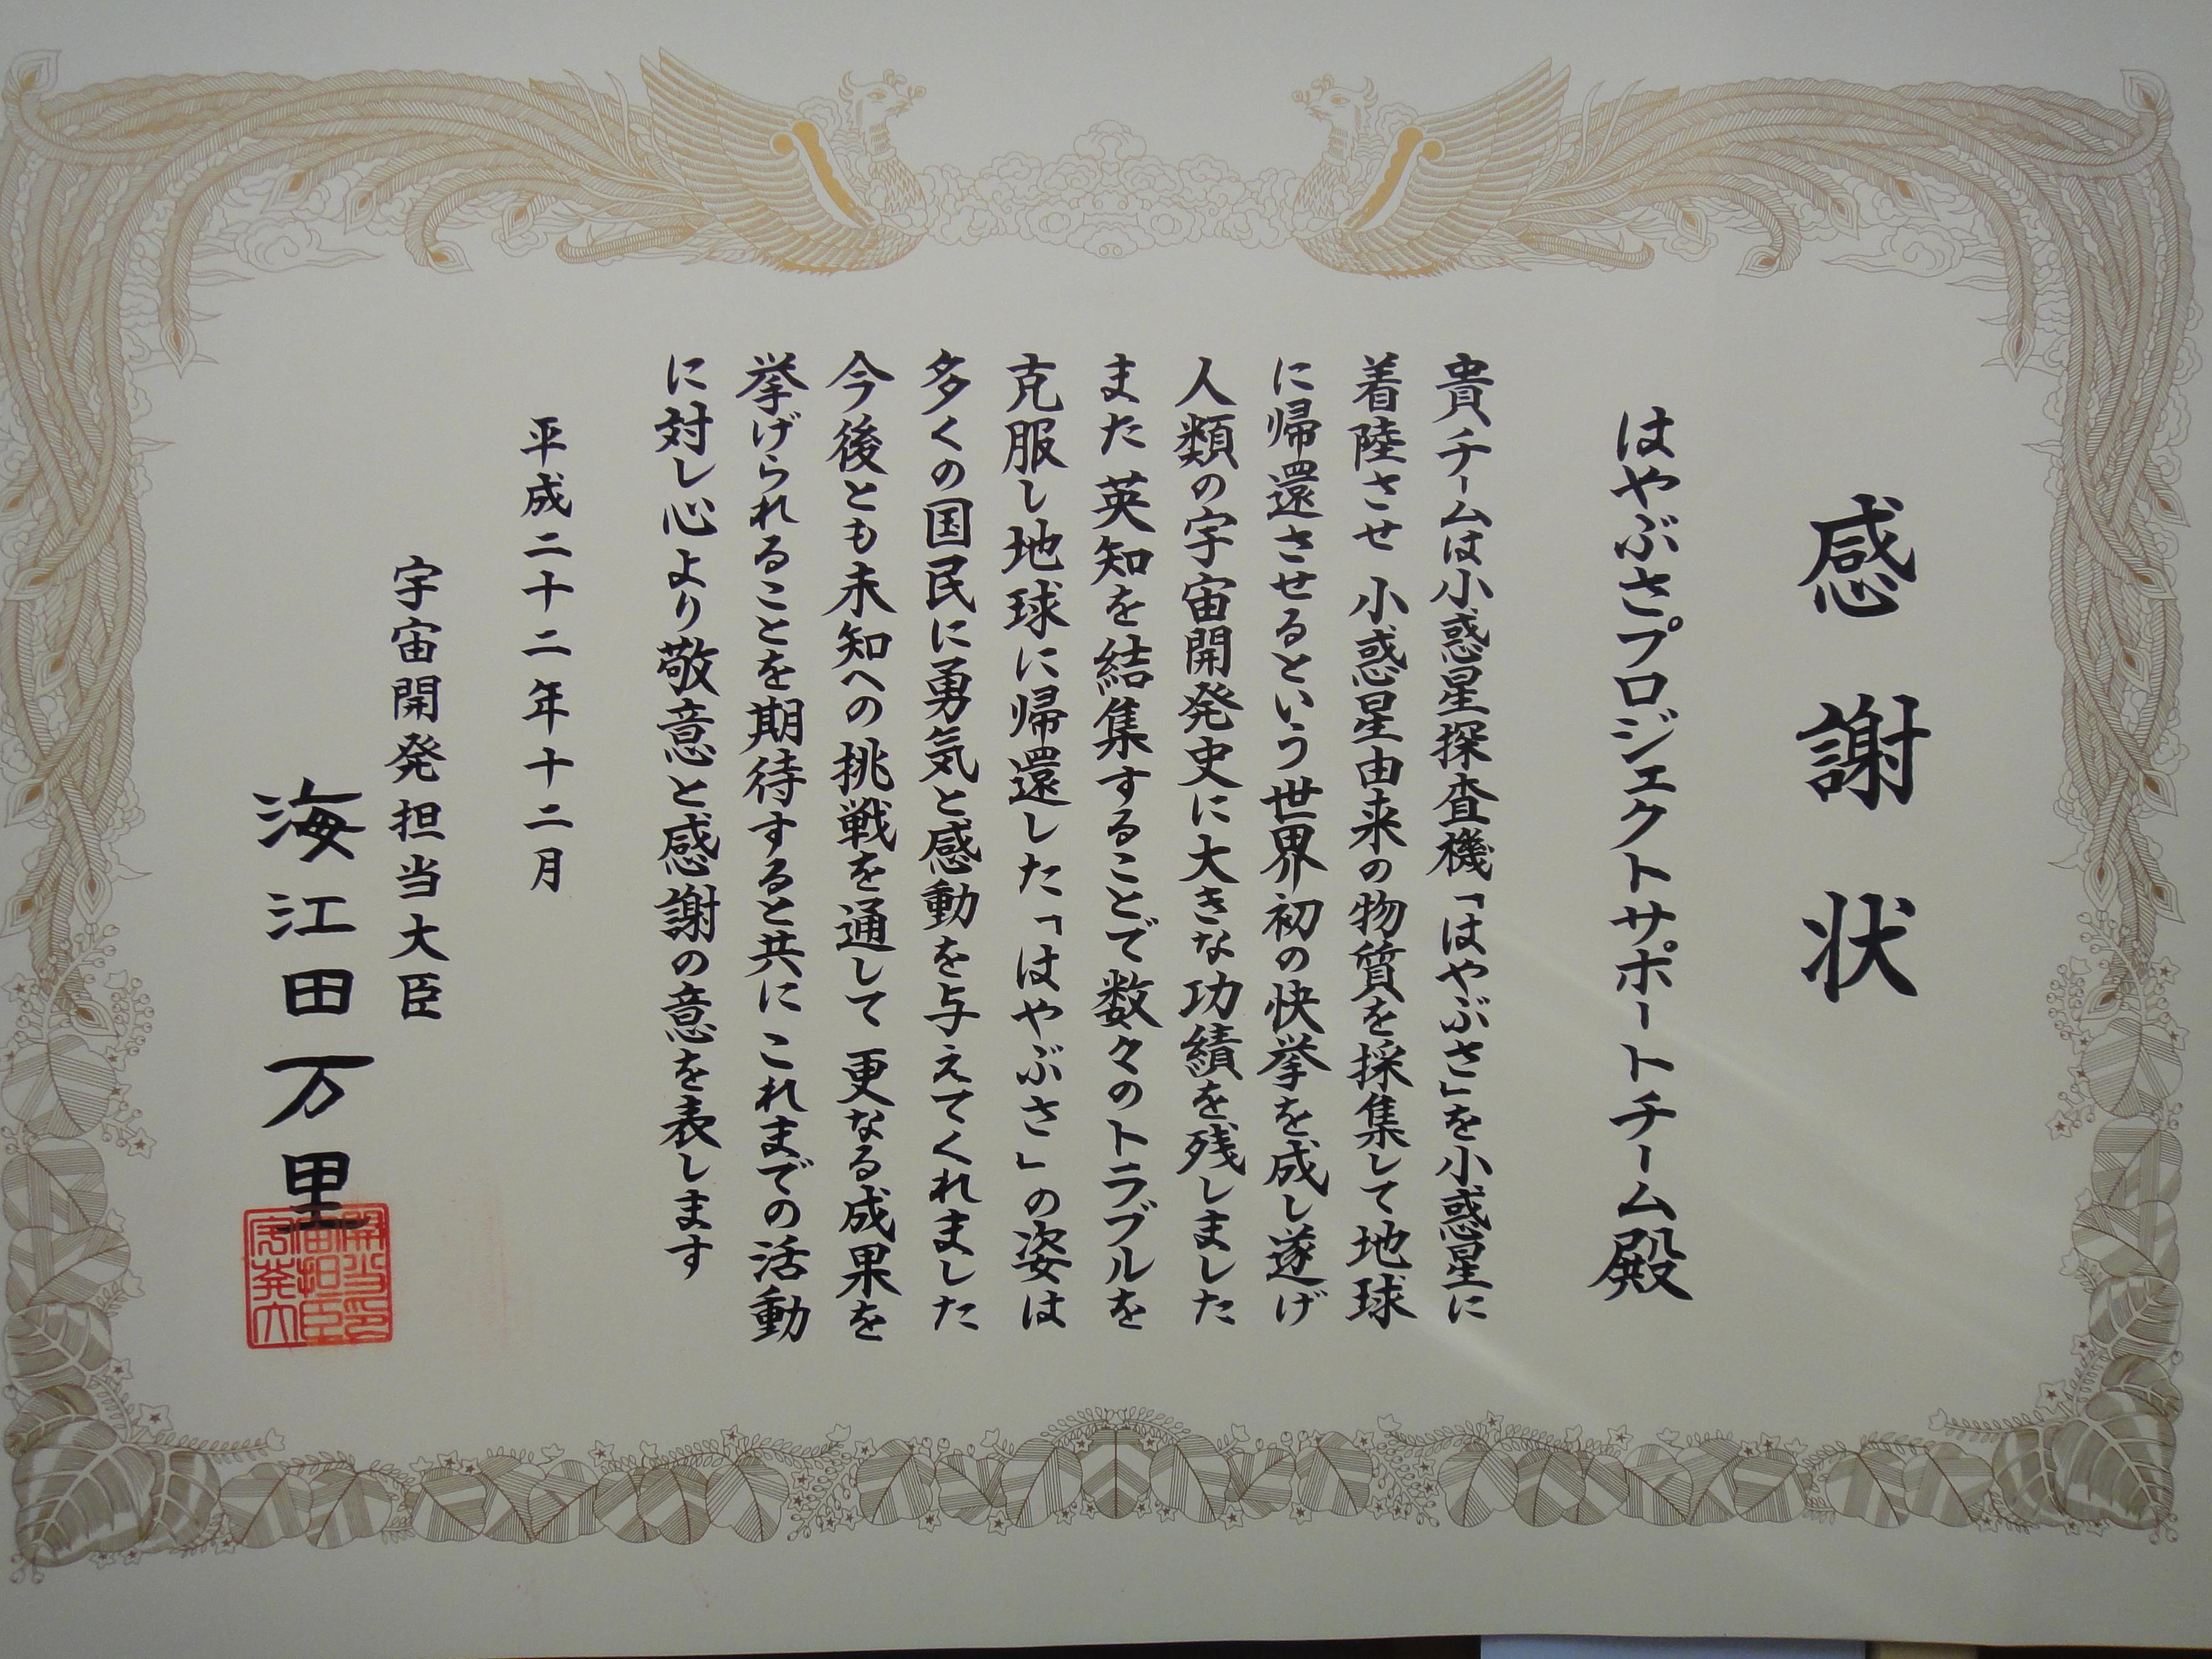 感謝状
はやぶさプロジェクトサポートチーム殿
貴チームは小惑星探査機「はやぶさ」を小惑星に
着陸させ 小惑星由来の物質を採集して地球
に帰還させるという世界初の快挙を成し遂げ
人類の宇宙開発史に大きな功績を残しました
また 英知を結集することで数々のトラブルを
克服し地球に帰還した「はやぶさ」の姿は
多くの国民に勇気と感動を与えてくれました
今後とも未知への挑戦を通して 更なる成果を
挙げられることを期待すると共に これまでの活動
に対し心より敬意と感謝の意を表します
平成二十二年十二月
宇宙開発担当大臣
海江田万里
開当印
宙担臣
宇発大